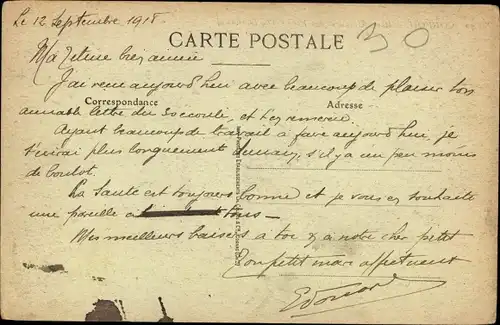 Le 12 Septembre 1918
30
CARTE POSTALE
Ma bien aimée
J'ai reçu aujourd'hui avec beaucoup de plaisir ton
Correspondance
Adresse
aimable lettre du et t'en remercie.
Ayant beaucoup de travail à faire aujourd'hui, je
t'écrirai plus longuement demain, s'il y a un peu moins
de boulot.
La Santé est toujours bonne et je vous en souhaite
une pareille à tous -
Mes meilleurs baisers à toi & à notre cher petit
Ton petit mari affectueux
Edouard